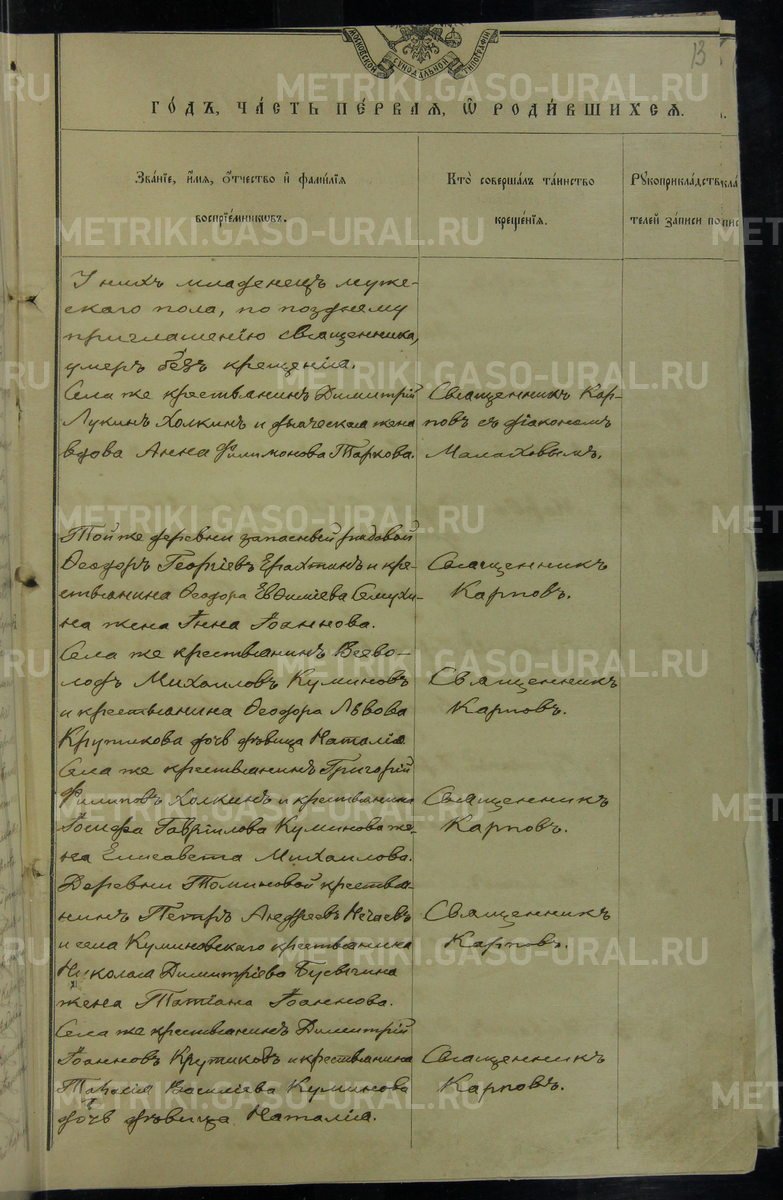 МОСКОВСКОЙ СѴНОДАЛЬНОЙ ТИПОГРАФІИ
13
ГО́ДЪ, ЧА́СТЬ ПЕ́РВАЯ, Ѡ҆ РОДИ́ВШИХСЯ.
Зва́нїе, и҆́мя, ѻ҆́тчество и҆ фами́лїя
воспрїе́мниковъ.
Кто̀ соверша́лъ та́инство
креще́нїя.
Рꙋкоприкла́дство
телей за́писи по
У нихъ младенецъ муже-
скаго пола, по позднему
приглашенію священника,
умеръ безъ крещенія.
Села же крестьянинъ Димитрій
Лукинъ Холкинъ и дьяческая жена
вдова Анна Филимонова Таркова.
Священникъ Кар-
повъ съ діакономъ
Малаховымъ.
Той же деревни запасный рядовой
Ѳеодоръ Георгіевъ Ерахтинъ и кре-
стьянина Ѳеодора Евѳиміева Семухи-
на жена Анна Іоаннова.
Священникъ
Карповъ.
Села же крестьянинъ Всево-
лодъ Михаиловъ Куминовъ
и крестьянина Ѳеодора Львова
Крутикова дочь дѣвица Наталія
Священникъ
Карповъ.
Села же крестьянинъ Григорій
Филиповъ Холкинъ и крестьянина
Іосифа Гавріилова Куминова же-
на Елисавета Михаилова.
Священникъ
Карповъ.
Деревни Томиловой крестья-
нинъ Петръ Андреевъ Нечаевъ
и села Куминовскаго крестьянина
Николая Димитріева Бусыгина
жена Татіана Іоаннова.
Священникъ
Карповъ.
Села же крестьянинъ Димитрій
Іоанновъ Крутиковъ и крестьянина
Тарасія Василіева Куминова
дочь дѣвица Наталія.
Священникъ
Карповъ.
METRIKI.GASO-URAL.RU